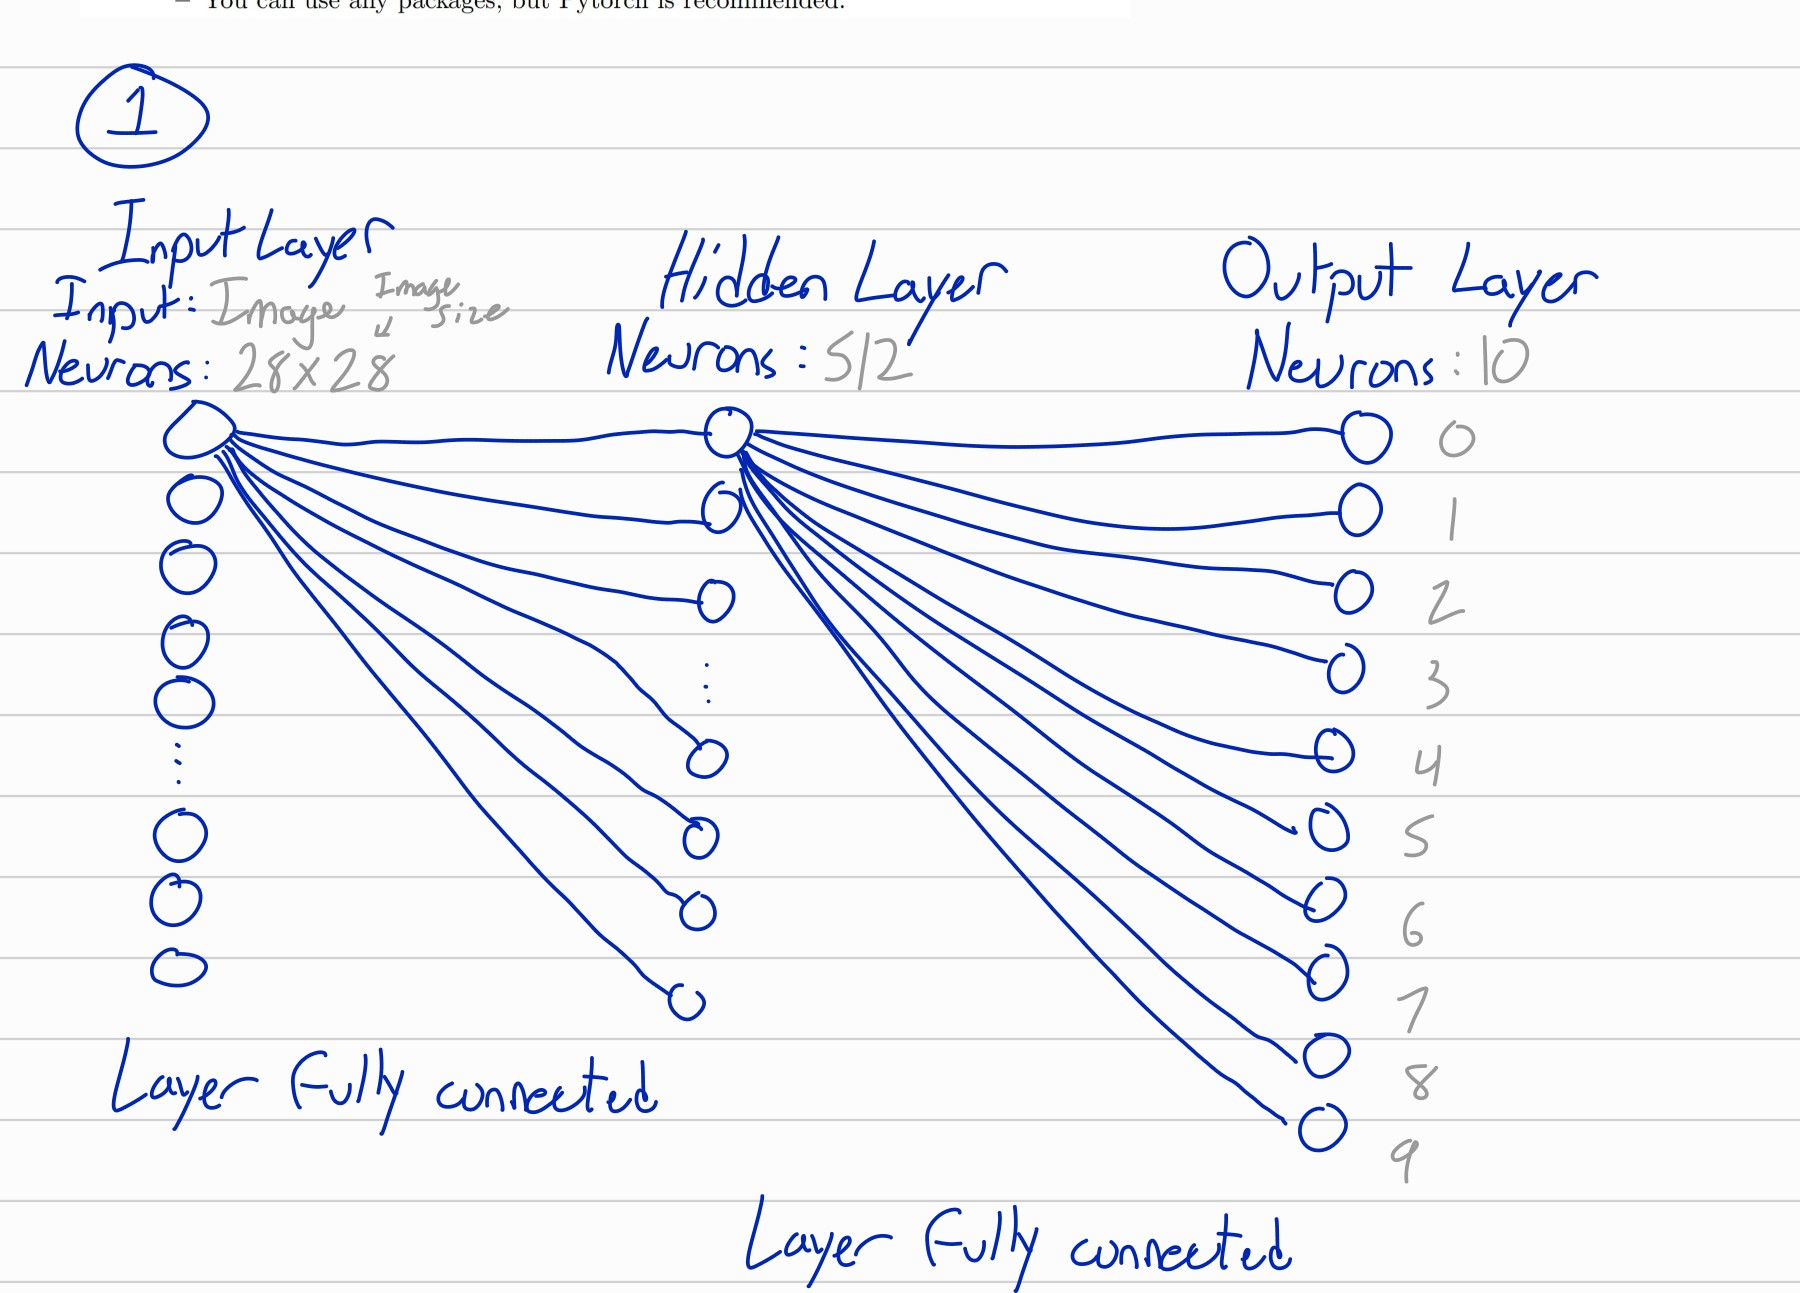 – You can use any packages, but Pytorch is recommended.
1
Input Layer
Input: Image
Image
size
Neurons: 28x28
Hidden Layer
Neurons: 512
Output Layer
Neurons: 10
0
1
2
3
4
5
6
7
8
9
Layer Fully connected
Layer Fully connected